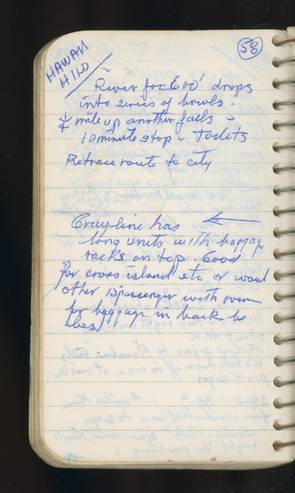 58
HAWAII
HILO
River for 600' drops
into series of bowls.
¼ mile up another falls -
10 minute stop - toilets
Retrace route to city
Grayline has
long units with baggage
racks on top. Good
for cross island etc or would
other 15 passenger with room
for baggage in back be
best